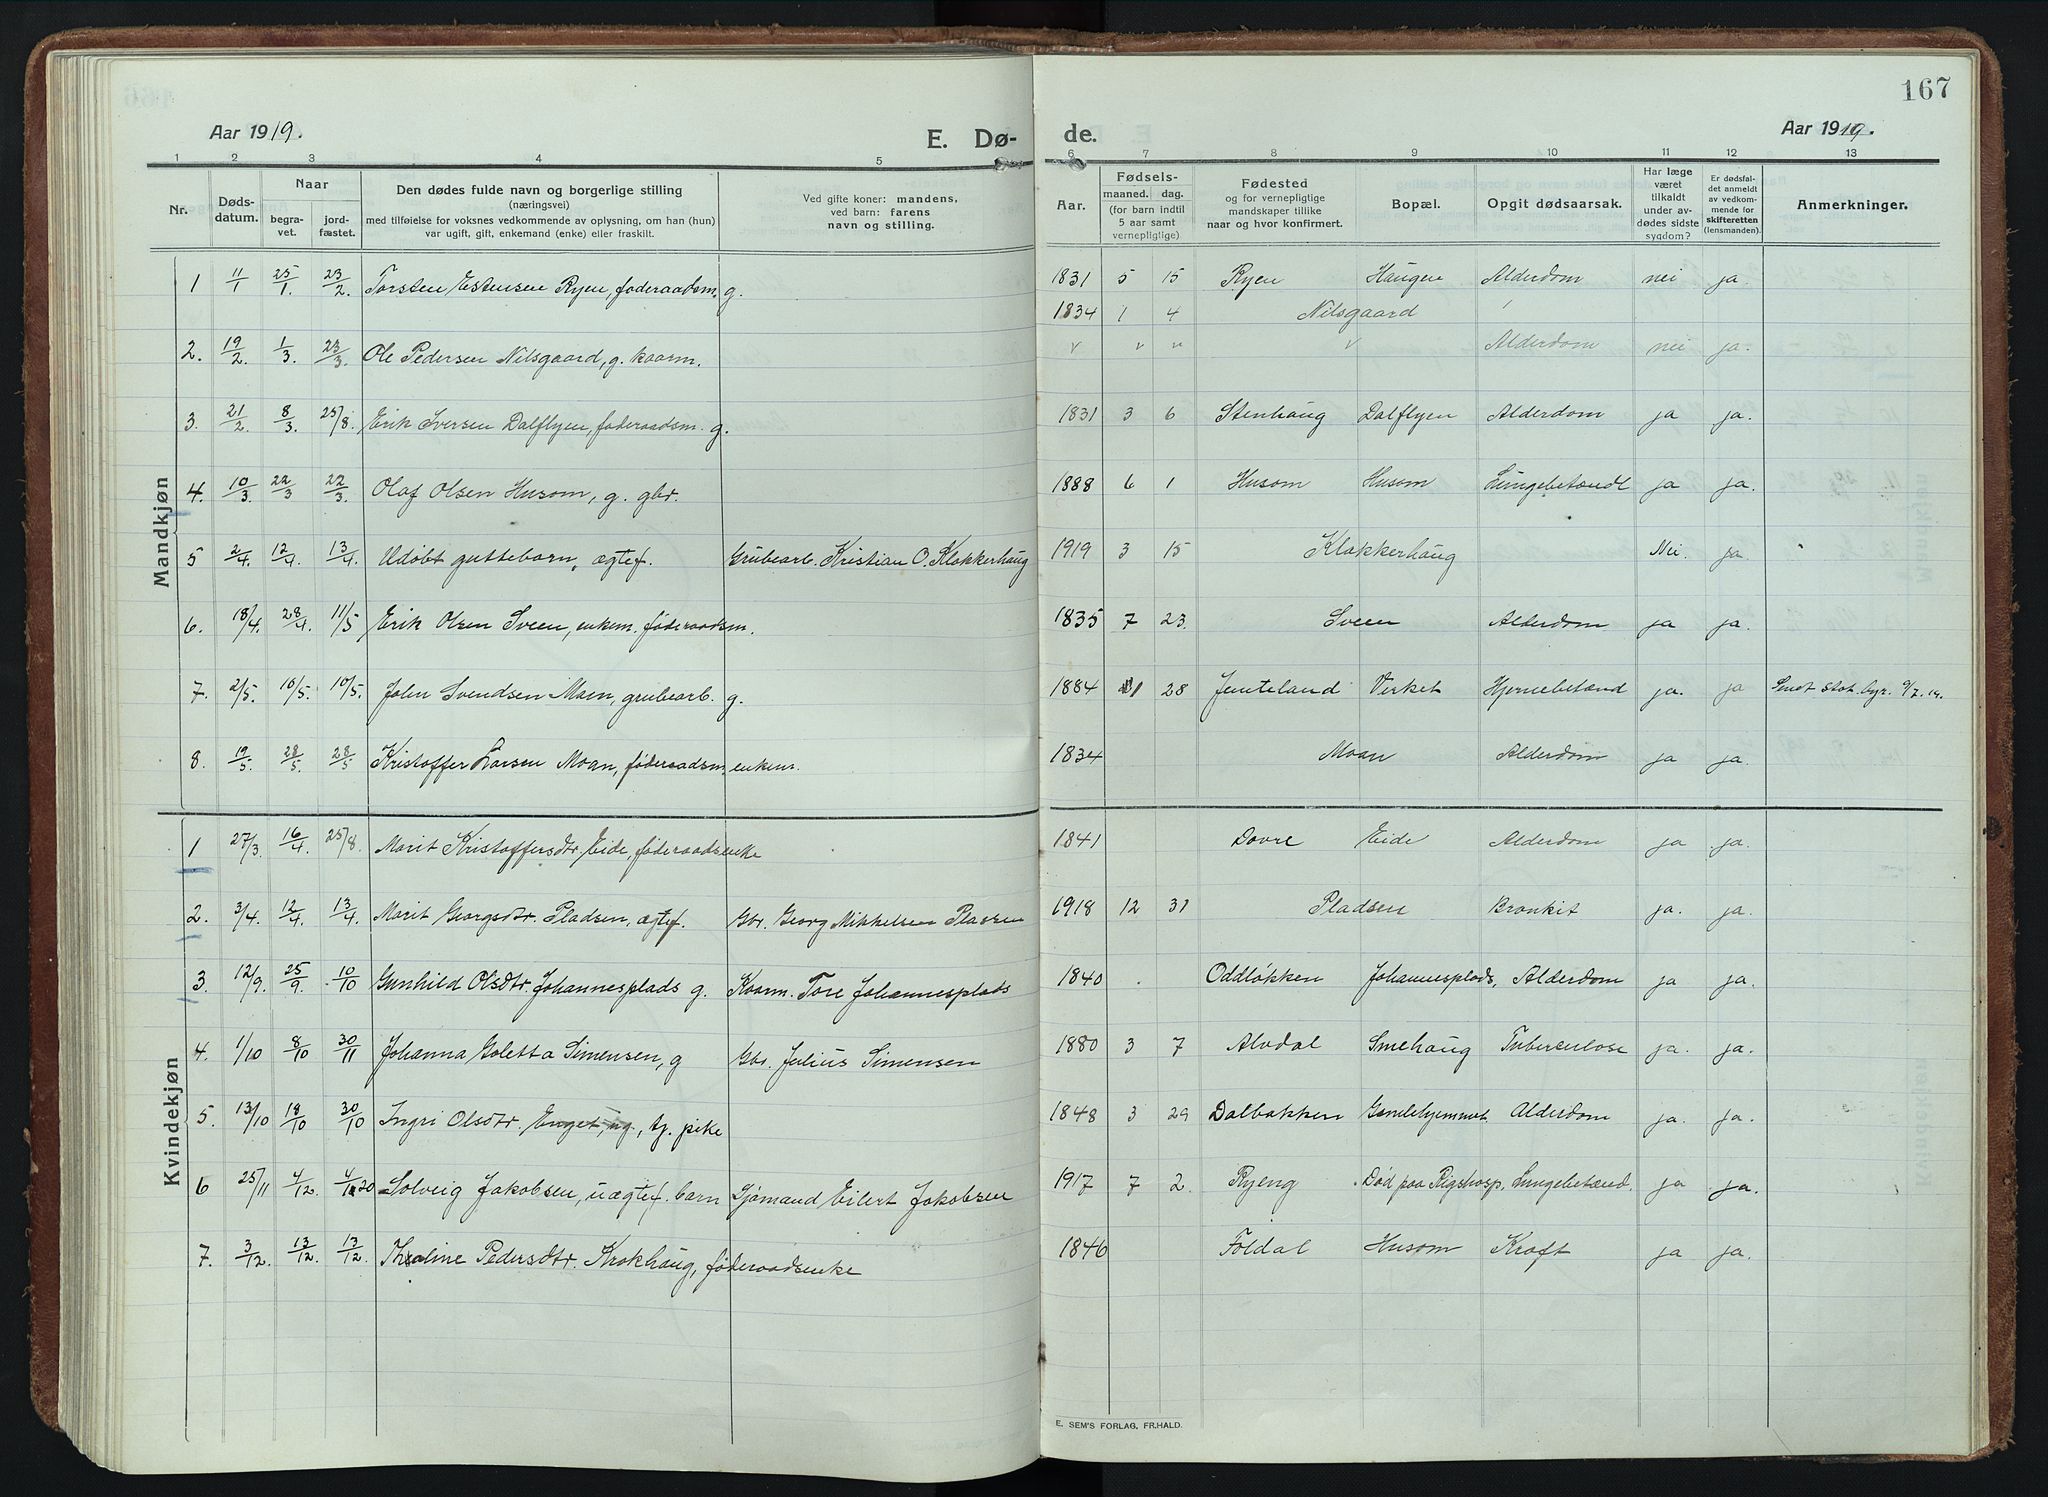 167
Aar 1919.
E. Dø-
de.
Aar 1919.
1 2 3 4 5 6 7 8 9 10 11 12 13
Nr.
Døds-
datum.
Naar
begra-
vet.
jord-
fæstet.
Den dødes fulde navn og borgerlige stilling
(næringsvei)
med tilføielse for voksnes vedkommende av oplysning, om han (hun)
var ugift, gift, enkemand (enke) eller fraskilt.
Ved gifte koner: mandens,
ved barn: farens
navn og stilling.
Fødsels-
Aar.
maaned. dag.
(for barn indtil
5 aar samt
vernepligtige)
Fødested
og for vernepligtige
mandskaper tillike
naar og hvor konfirmert.
Bopæl.
Opgit dødsaarsak.
Har læge
været
tilkaldt
under av-
dødes sidste
sygdom?
Er dødsfal-
det anmeldt
av vedkom-
mende for
skifteretten
(lensmanden).
Anmerkninger.
Mandkjøn
1 11/1 25/1. 23/2. Torsten Estensen Ryen, føderaadsm. g. 1831 5 15 Ryen Haugen Alderdom nei ja.
1834 1 4 Nilsgaard
2. 19/2 1/3. 23/3. Ole Pedersen Nilsgaard, g. kaarm. Alderdom nei ja.
3. 21/2 8/3. 25/8. Erik Iversen Dalflyen, føderaadsm. g. 1831 3 6 Stenhaug Dalflyen Alderdom ja ja.
4. 10/3. 22/3 22/3. Olaf Olsen Husom, g. gbr. 1888 6 1 Husom Husom Lungebetændl ja ja.
5 2/4. 12/4. 13/4. Udøbt guttebarn, ægtef. Grubearb. Kristian O. Klokkerhaug 1919 3 15 Klokkerhaug Nei. ja
6. 18/4. 28/4. 11/5 Erik Olsen Sveen, enkem. føderaadsm. 1835 7 23 Sveen Alderdom ja ja.
7. 2/5. 10/5. 10/5. John Svendsen Moen, grubearb. g. 1884 11 28 Jemteland Verket Hjernebetænd ja. ja Smdt Stat. byr. 9/7. 19.
8. 19/5. 28/5. 28/5 Kristoffer Larsen Moan, føderaadsm, enkem. 1834 Moan Alderdom ja ja.
Kvindekjøn
1 27/3. 16/4 25/8. Marit Kristoffersdtr. Eide, føderaadsenke 1841 Dovre Eide Alderdom ja ja.
2. 3/4. 12/4. 13/4. Marit Georgsdtr. Pladsen, ægtef. Gbr. Georg Mikkelsen Pladsen 1918 12 31 Pladsen Bronkit ja. ja.
3. 12/9. 25/9 10/10 Gunhild Olsdtr. Johannesplads g. Kaarm. Tore Johannesplads 1840 Oddløkken Johannesplads, Alderdom ja ja.
4. 1/10 8/10 30/11 Johanna Goletta Simensen, g Gbr. Julius Simensen 1880 3 7 Alvdal Smehaug Tuberculose ja. ja.
5. 13/10 18/10 30/10 Ingri Olsdtr. Enget, ug, tj. pike 1848 3 29 Dalbakken Gamlehjemmet. Alderdom ja. ja.
6 25/11 4/12. 4/1 20 Solveig Jakobsen, uægtef. barn Sjømand Eilert Jakobsen 1917 7 2. Ryeng Død paa Rigshosp. Lungebetænd. ja ja.
7. 3/12. 13/12 13/12. Thaline Pedersdtr. Krokhaug, føderaadsenke 1846 Foldal Husom Kræft ja ja.
E. SEM'S FORLAG, FR.HALD.